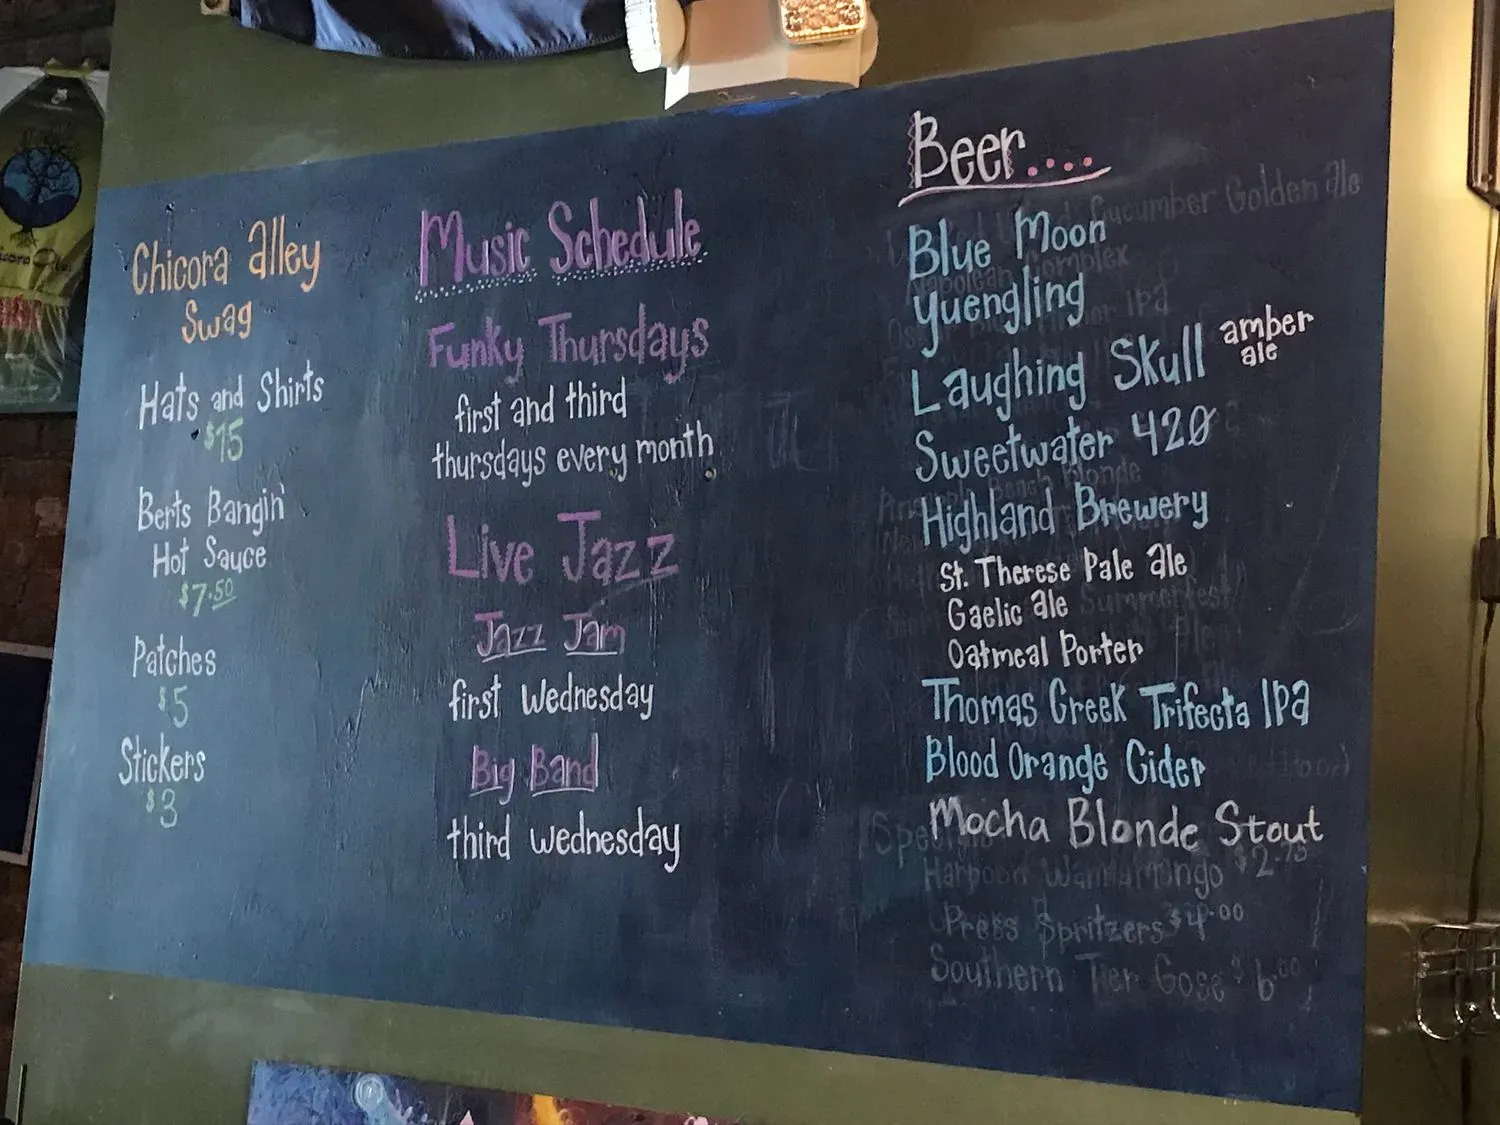 Chicora alley
Swag
Hats and Shirts
$15
Berts Bangin'
Hot Sauce
$7.50
Patches
$5
Stickers
$3
Music Schedule
Funky Thursdays
first and third
thursdays every month
Live Jazz
Jazz Jam
first Wednesday
Big Band
third wednesday
Beer....
Blue Moon
Yuengling
Laughing Skull amber
ale
Sweetwater 420
Highland Brewery
St. Therese Pale ale
Gaelic ale
Oatmeal Porter
Thomas Creek Trifecta IPa
Blood Orange Cider
Mocha Blonde Stout
Cucumber Golden ale
Napolean Complex
Blonde
Summerfest
Specials
Harpoon $2.75
Press Spritzers $4.00
Southern Tier Gose $6.00